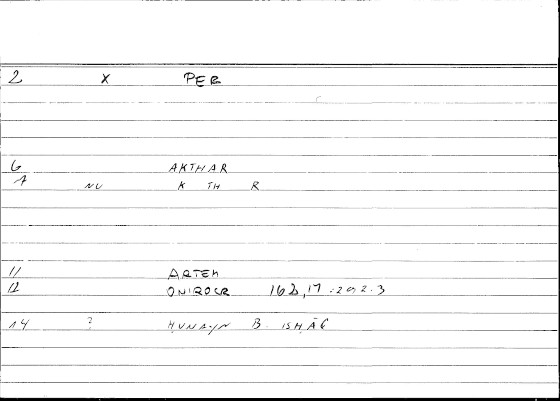 2 X PER
6 AKTHAR
7 NU K TH R
11 ARTEM
12 ONIROCR 162,17 : 202.3
14 ? HUNAYN B. ISHĀQ